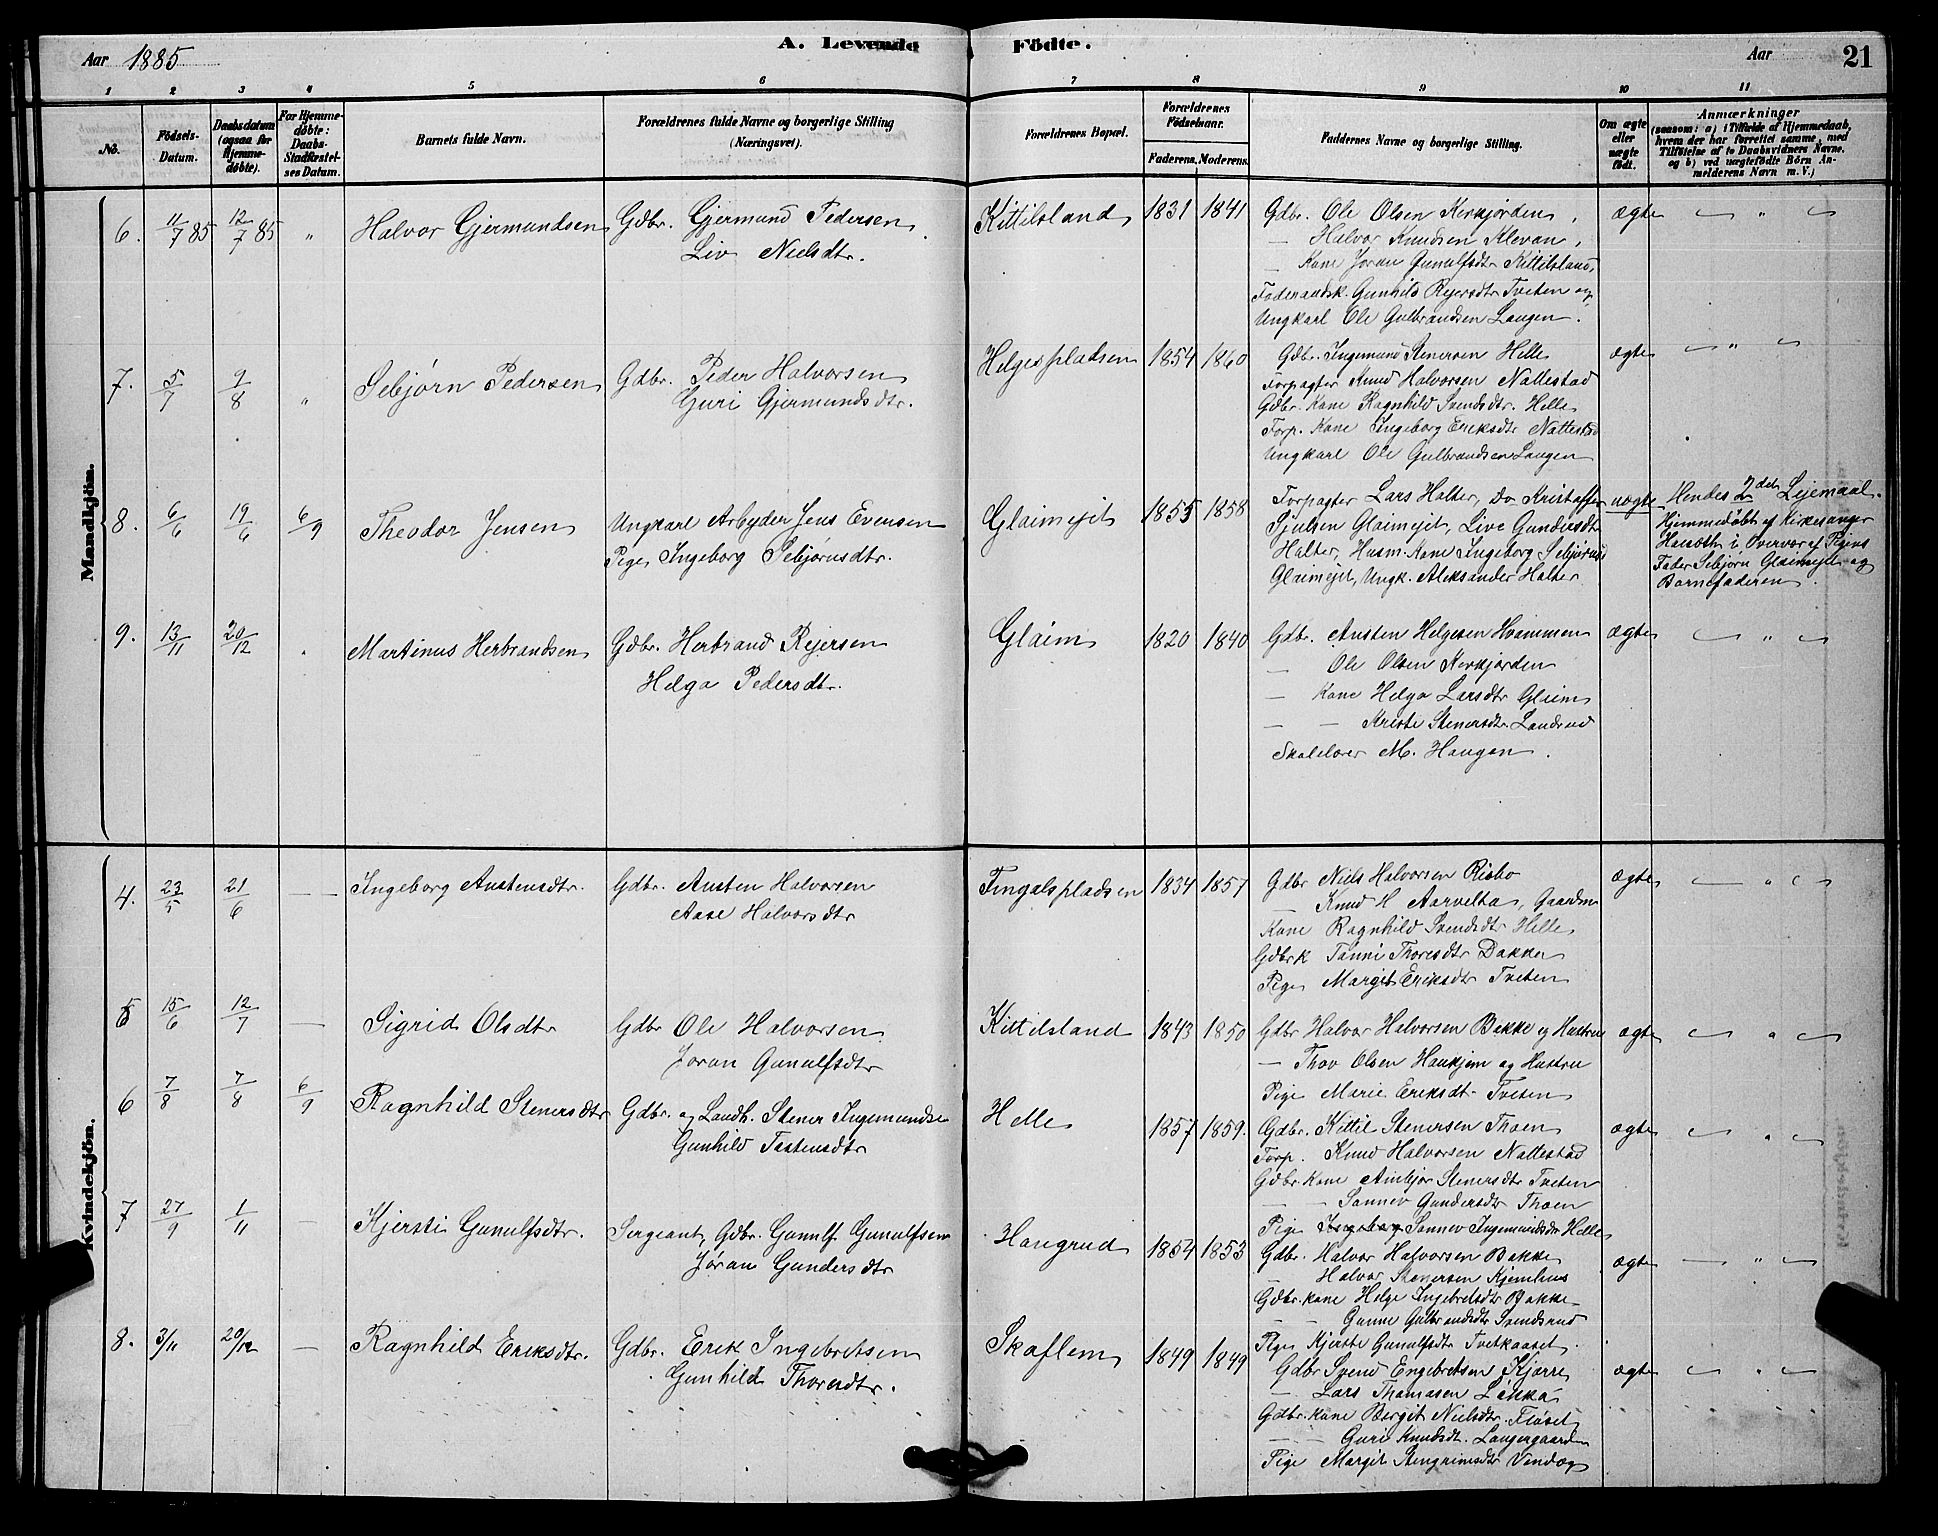 Aar 1885
A. Levende Födte.
Aar 21
1 2 3 4 5 6 7 8 9 10 11
No.
Födsels-Datum.
Daabsdatum (ogsaa for Hjemmedøbte).
For Hjemmedøbte: Daabs-Stadfæstelses Datum.
Barnets fulde Navn.
Forældrenes fulde Navne og borgerlige Stilling (Næringsvei).
Forældrenes Bopæl.
Forældrenes Födselsaar.
Faderens. Moderens.
Faddernes Navne og borgerlige Stilling.
Om ægte eller uægte födt.
Anmærkninger
(saasom: a) i Tilfælde af Hjemmedaab, hvem der har forrettet samme, med Tilföielse af to Daabsvidners Navne, og b) ved uægtefödte Börn Anmelderens Navn m. V.)
Mandkjön.
6. 11/7 85 12/7 85 " Halvor Gjermundsen Gdbr. Gjermund Pedersen
Liv Nielsdtr.
Kittilsland 1831 1841
Gdbr. Ole Olsen Kerkjorden,
— Halvor Knudsen Klevan,
— Kone Joran Gunulfsdtr Kittilsland,
Føderaadsk. Gunhild Rejersdtr Tveten og
Ungkarl Ole Gulbrandsen Langen.
ægte — " —
7. 5/7 9/8 " Sebjørn Pedersen Gdbr. Peder Halvorsen
Guri Gjermundsdtr.
Helgespladsen 1854 1860
Gdbr. Ingemund Stenersen Helle
Forpagter Knud Halvorsen Nattestad
Gdbr. Kone Ragnhild Svendsdtr. Helle
Forp. Kone Ingeborg Eriksdtr Nattestad
Ungkarl Ole Gulbrandsen Langen
ægte — " —
8. 6/6 19/6 6/9 Theodor Jensen Ungkarl Arbejder Jens Evensen
Pige Ingeborg Sebjørnsdtr.
Glaimejit 1855 1858
Forpagter Lars Halter, Do Kristoffer
Sjulsen Glaimejit, Live Gundersdtr
Halter, Husm. Kone Ingeborg Sebjørnsd
Glaimejit, Ungk. Aleksander Halter
uægte
Hendes 2det Lejemaal.
Hjemmedøbt af Kirkesanger
i Overvær af Pigens
Fader Sebjørn Glaimejit og
Barnefaderen.
9. 13/11 20/12 " Martinus Herbrandsen Gdbr. Herbrand Rejersen
Helga Pedersdtr.
Glaim 1820 1840
Gdbr. Austen Helgesen Hvammen
— Ole Olsen Kerkjorden
— Kone Helga Larsdtr Glaim
— — Kristi Stenersdtr. Landsrud
Skolelærer M. Haugan.
ægte — " —
Kvindekjön.
4. 23/5 21/6 — Ingeborg Austensdtr. Gdbr. Austen Halvorsen
Aase Halvorsdtr
Tingalspladsen 1834 1857
Gdbr Niels Halvorsen Risbo
— Knud H Aarvelta, Gaardm
Kone Ragnhild Svendsdtr Helle
Gdbrk Tanni Thoresdtr Dokken
Pige Margit Eriksdtr Tveten
ægte — " —
5 15/6 12/7 — Sigrid Olsdtr Gdbr Ole Halvorsen
Joran Gunulfsdtr
Kittilsland 1843 1850
Gdbr Halvor Halvorsen Bakke og Hustru
— Thov Olsen Haukjem og Hustru
Pige Marie Eriksdt. Tveten
ægte — " —
6 7/8 7/8 6/9 Ragnhild Stenersdtr Gdbr. og Landh. Stener Ingemundse
Gunhild Tostensdtr
Helle 1857 1859.
Gdbr. Kittil Stenersen Thoen
Forp. Knud Halvorsen Nattestad
Gdbr Kone Ambjør Stenersdtr Tveten
— — Sannev Gundersdtr Thoen
Pige Ingeborg Sannev Ingemundsdtr Helle
ægte — " —
7 27/9 1/11 — Kjersti Gunulfsdtr. Sergeant, Gdbr. Gunulf Gunulfsen
Jøran Gundersdtr
Haugrud 1854 1853
Gdbr. Halvor Halvorsen Bakke
— Halvor Stenersen Kjemhus
Gdbr. kone Helge Ingebretsdtr Bakke
— Gunne Gulbrandsdtr Svendsrud
Pige Kjerstie Gunulfsdtr Tvetkaaset.
ægte — " —
8. 3/11 20/12 — Ragnhild Eriksdtr. Gdbr. Erik Ingebretsen
Gunhild Thoresdtr.
Skaflem 1849 1849
Gdbr Svend Engebretsen Kjørre
— Lars Thomasen Løkka
Gdbr. kone Bergit Nielsdtr. Fløset
— — Guri Knudsdt. Langergaarden
Pige Margit Stengrimsdtr Vindeg
ægte — " —